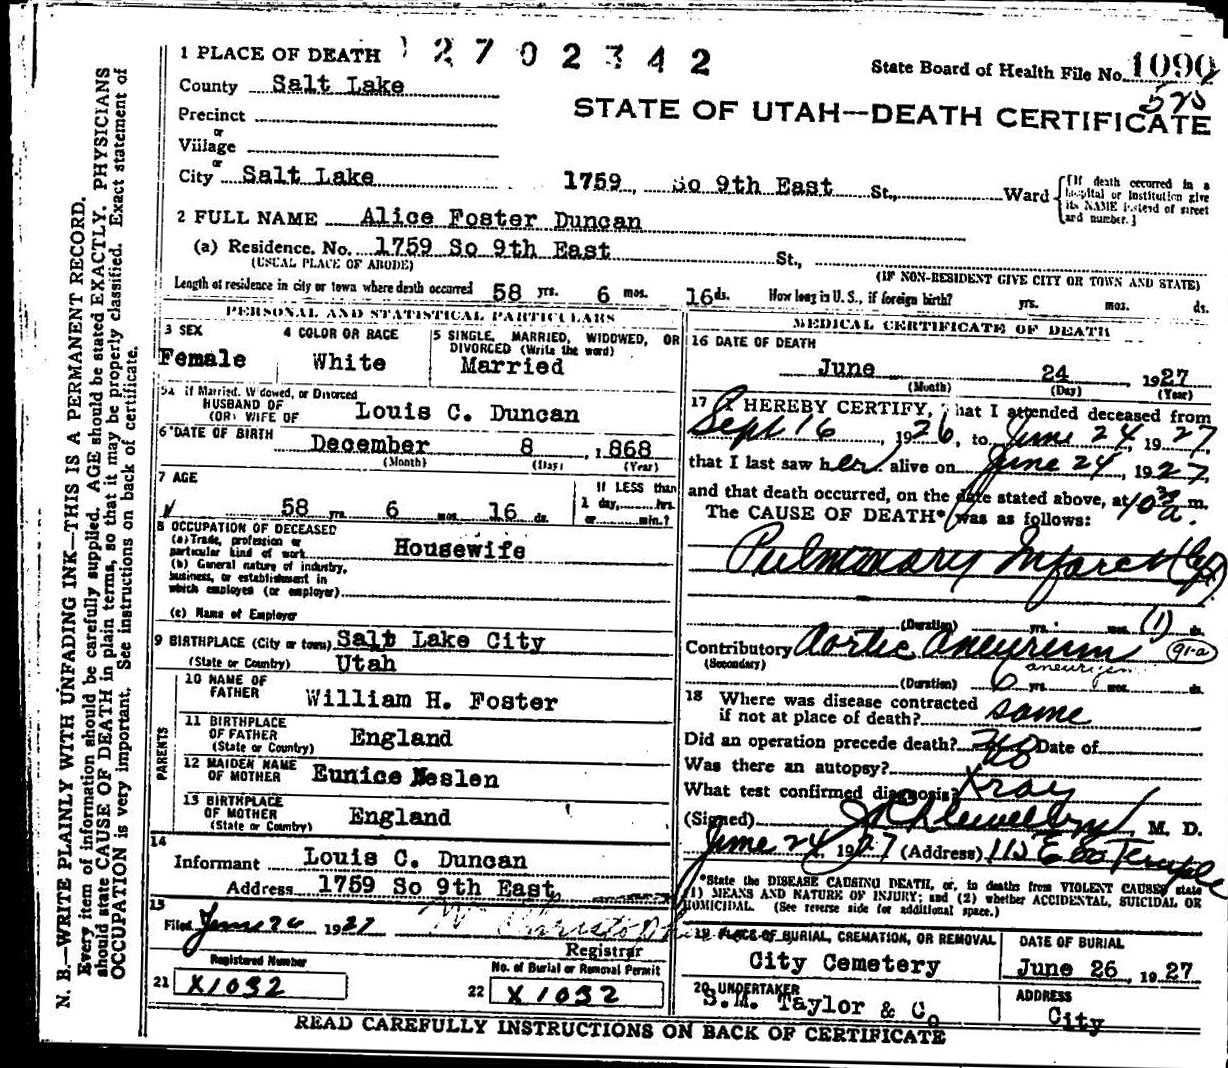 1 PLACE OF DEATH 2 7 0 2 3 4 2
State Board of Health File No. 1090
570
County Salt Lake
STATE OF UTAH—DEATH CERTIFICATE
Precinct
or
Village
or
City Salt Lake 1759 So 9th East St., Ward {[If death occurred in a hospital or institution give its NAME instead of street and number.]
2 FULL NAME Alice Foster Duncan
(a) Residence. No. 1759 So 9th East St.,
(USUAL PLACE OF ABODE) (IF NON-RESIDENT GIVE CITY OR TOWN AND STATE)
Length of residence in city or town where death occurred 58 yrs. 6 mos. 16 ds. How long in U. S., if foreign birth? yrs. mos. ds.
PERSONAL AND STATISTICAL PARTICULARS
3 SEX
Female
4 COLOR OR RACE
White
5 SINGLE, MARRIED, WIDOWED, OR
DIVORCED (Write the word)
Married
5a if Married, Widowed, or Divorced
HUSBAND OF
(OR) WIFE OF Louis C. Duncan
6 DATE OF BIRTH
December 8 , 1868
(Month) (Day) (Year)
7 AGE
58 yrs. 6 mos. 16 ds.
If LESS than
1 day, hrs.
or min.?
8 OCCUPATION OF DECEASED
(a) Trade, profession or
particular kind of work Housewife
(b) General nature of industry,
business, or establishment in
which employed (or employer)
(c) Name of Employer
9 BIRTHPLACE (City or town) Salt Lake City
(State or Country) Utah
PARENTS
10 NAME OF
FATHER William H. Foster
11 BIRTHPLACE
OF FATHER England
(State or Country)
12 MAIDEN NAME
OF MOTHER Eunice Neslen
13 BIRTHPLACE
OF MOTHER England
(State or Country)
14
Informant Louis C. Duncan
Address 1759 So 9th East
15
Filed June 26 1927
Registrar
Registered Number
21 X1032
No. of Burial or Removal Permit
22 X1032
MEDICAL CERTIFICATE OF DEATH
16 DATE OF DEATH
June 24 1927
(Month) (Day) (Year)
17 I HEREBY CERTIFY, That I attended deceased from
Sept 16, 1926, to June 24 1927
that I last saw her alive on June 24, 1927,
and that death occurred, on the date stated above, at 10 30 a.m.
The CAUSE OF DEATH* was as follows:
Pulmonary Infarct
(Duration) yrs. mos. (1) ds.
Contributory Aortic Aneurism 91-a
(Secondary) aneurysm
(Duration) 6 yrs. mos. ds.
18 Where was disease contracted
if not at place of death? same
Did an operation precede death? No Date of
Was there an autopsy?
What test confirmed diagnosis? Xray
(Signed) M. D.
June 24, 1927 (Address) 115 E So Temple
*State the DISEASE CAUSING DEATH, or, in deaths from VIOLENT CAUSES state
(1) MEANS AND NATURE OF INJURY; and (2) whether ACCIDENTAL, SUICIDAL OR
HOMICIDAL. (See reverse side for additional space.)
19 PLACE OF BURIAL, CREMATION, OR REMOVAL
City Cemetery
DATE OF BURIAL
June 26, 1927
20 UNDERTAKER
S.M. Taylor & Co
ADDRESS
City
READ CAREFULLY INSTRUCTIONS ON BACK OF CERTIFICATE
N. B.—WRITE PLAINLY WITH UNFADING INK—THIS IS A PERMANENT RECORD.
Every item of information should be carefully supplied. AGE should be stated EXACTLY. PHYSICIANS
should state CAUSE OF DEATH in plain terms, so that it may be properly classified. Exact statement of
OCCUPATION is very important. See instructions on back of certificate.